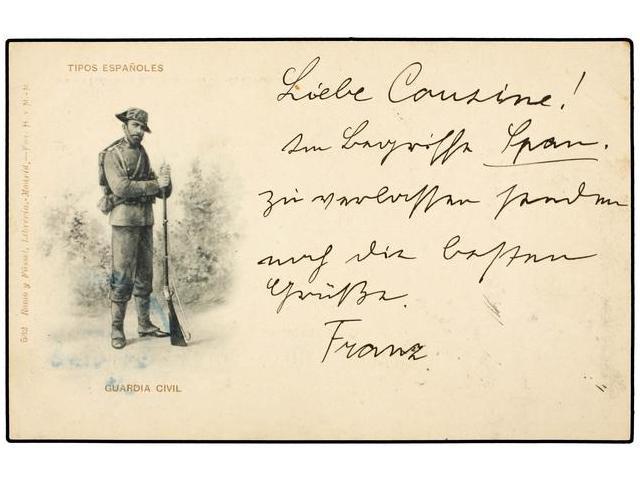 TIPOS ESPAÑOLES
Liebe Cousine!
Im Begriffe Span.
zu verlassen senden
noch die besten
Grüße
Franz
GUARDIA CIVIL
Romo y Füssel, Librería.-Madrid.